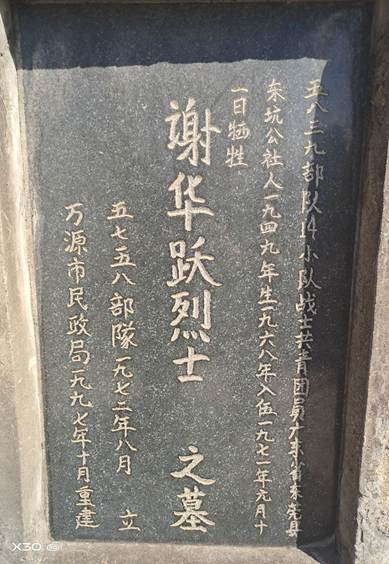 五八三九部队14小队战士共青团员广东省东莞县
朱坑公社人一九四九年生一九六八年入伍一九七一年元月十
一日牺牲
谢华跃烈士 之墓
五七五八部隊一九七二年八月 立
万源市民政局一九九七年十月重建
X30